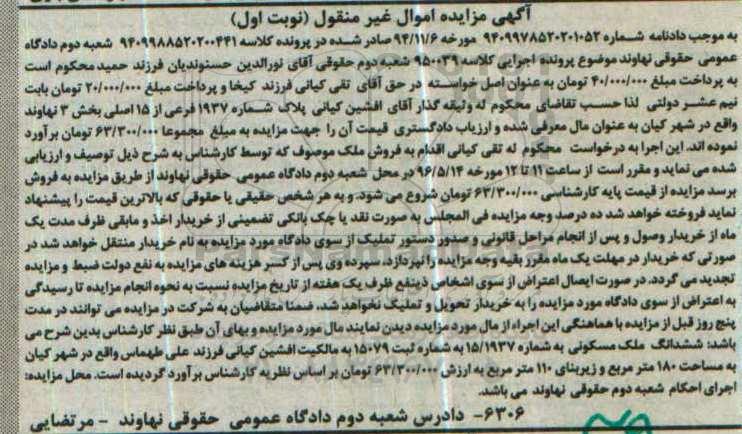 آگهی مزایده اموال غیر منقول (نوبت اول)
به موجب دادنامه شماره ۹۴۰۹۹۷۸۵۲۰۲۰۱۰۵۲ مورخه ۹۴/۱۱/۶ صادر شده در پرونده کلاسه ۹۴۰۹۹۸۸۵۲۰۲۰۰۴۴۱ شعبه دوم دادگاه
عمومی حقوقی نهاوند موضوع پرونده اجرایی کلاسه ۹۵۰۰۳۹ شعبه دوم حقوقی آقای نورالدین حسنوندیان فرزند حمید محکوم است
به پرداخت مبلغ ۴۰/۰۰۰/۰۰۰ تومان به عنوان اصل خواسته در حق آقای تقی کیانی فرزند کیخا و پرداخت مبلغ ۲۰/۰۰۰/۰۰۰ تومان بابت
نیم عشر دولتی لذا حسب تقاضای محکوم له وثیقه گذار آقای افشین کیانی پلاک شماره ۱۹۳۷ فرعی از ۱۵ اصلی بخش ۳ نهاوند
واقع در شهر کیان به عنوان مال معرفی شده و ارزیاب دادگستری قیمت آن را جهت مزایده به مبلغ مجموعا ۶۳/۳۰۰/۰۰۰ تومان برآورد
نموده اند. این اجرا به درخواست محکوم له تقی کیانی اقدام به فروش ملک موصوف که توسط کارشناس به شرح ذیل توصیف و ارزیابی
شده می نماید و مقرر است از ساعت ۱۱ تا ۱۲ مورخه ۹۶/۵/۱۴ در محل شعبه دوم دادگاه عمومی حقوقی نهاوند از طریق مزایده به فروش
برسد مزایده از قیمت پایه کارشناسی ۶۳/۳۰۰/۰۰۰ تومان شروع می شود. و به هر شخص حقیقی یا حقوقی که بالاترین قیمت را پیشنهاد
نماید فروخته خواهد شد ده درصد وجه مزایده فی المجلس به صورت نقد یا چک بانکی تضمینی از خریدار اخذ و مابقی ظرف مدت یک
ماه از خریدار وصول و پس از انجام مراحل قانونی و صدور دستور تملیک از سوی دادگاه مورد مزایده به نام خریدار منتقل خواهد شد در
صورتی که خریدار در مهلت یک ماه مقرر بقیه وجه مزایده را نپردازد، سپرده وی پس از کسر هزینه های مزایده به نفع دولت ضبط و مزایده
تجدید می گردد. در صورت ایصال اعتراض از سوی اشخاص ذینفع ظرف یک هفته از تاریخ مزایده نسبت به نحوه انجام مزایده تا رسیدگی
به اعتراض از سوی دادگاه مورد مزایده را به خریدار تحویل و تملیک نخواهد شد. ضمنا متقاضیان به شرکت در مزایده می توانند در مدت
پنج روز قبل از مزایده با هماهنگی این اجراء از مال مورد مزایده دیدن نمایند مال مورد مزایده و بهای آن طبق نظر کارشناس بدین شرح می
باشد: ششدانگ ملک مسکونی به شماره ۱۵/۱۹۳۷ به شماره ثبت ۱۵۰۷۹ به مالکیت افشین کیانی فرزند علی طهماس واقع در شهر کیان
به مساحت ۱۸۰ متر مربع و زیربنای ۱۱۰ متر مربع به ارزش ۶۳/۳۰۰/۰۰۰ تومان بر اساس نظریه کارشناس برآورد گردیده است. محل مزایده:
اجرای احکام شعبه دوم حقوقی نهاوند می باشد.
۶۳۰۶- دادرس شعبه دوم دادگاه عمومی حقوقی نهاوند - مرتضایی